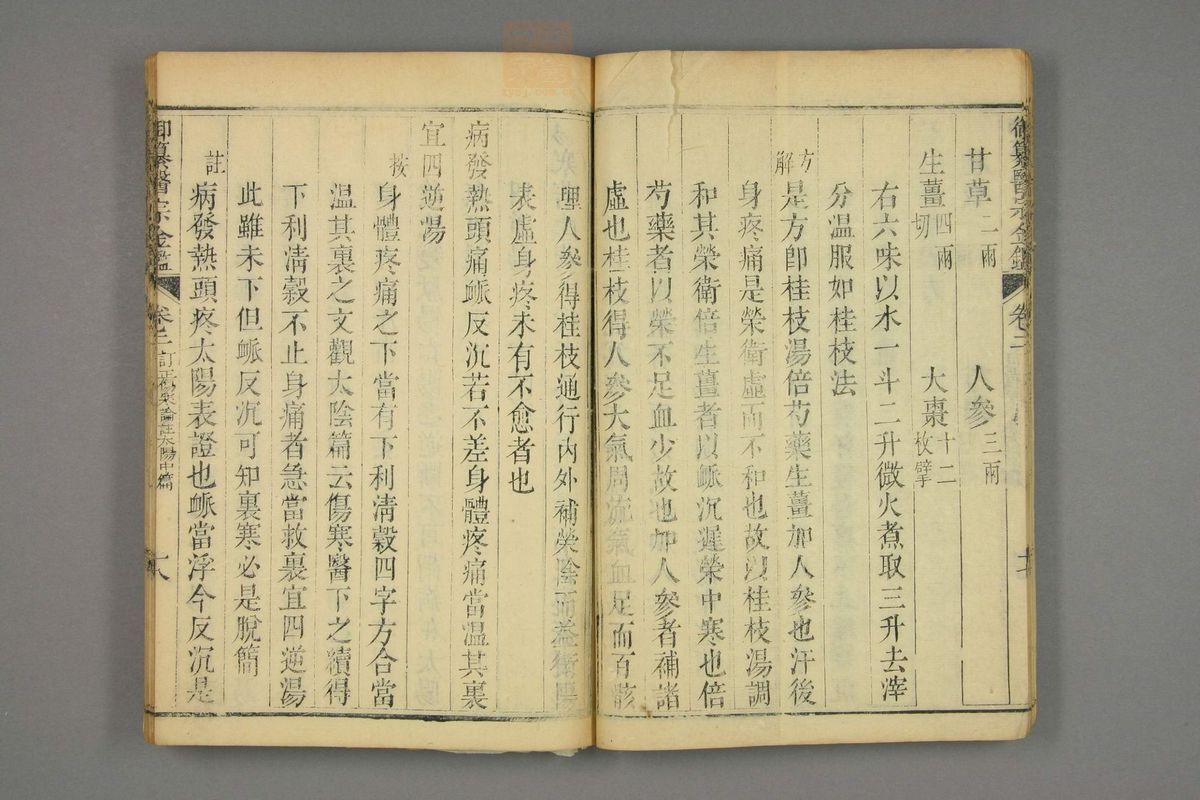 御纂醫宗金鑑 卷二
甘草二兩 人參三兩
生薑四兩切 大棗十二枚擘
右六味以水一斗二升微火煮取三升去滓
分溫服如桂枝法
方解 是方卽桂枝湯倍芍藥生薑加人參也汗後
身疼痛是榮衛虛而不和也故以桂枝湯調
和其榮衛倍生薑者以脈沉遲榮中寒也倍
芍藥者以榮不足血少故也加人參者補諸
虛也桂枝得人參大氣周流氣血足而百骸
理人參得桂枝通行內外補榮陰而益衛陽
表虛身疼未有不愈者也
病發熱頭痛脈反沉若不差身體疼痛當溫其裏
宜四逆湯
按 身體疼痛之下當有下利淸穀四字方合當
溫其裏之文觀太陰篇云傷寒醫下之續得
下利淸穀不止身痛者急當救裏宜四逆湯
此雖未下但脈反沉可知裏寒必是脫簡
註 病發熱頭疼太陽表證也脈當浮今反沉是
御纂醫宗金鑑 卷二 訂正傷寒論註太陽中篇 十八